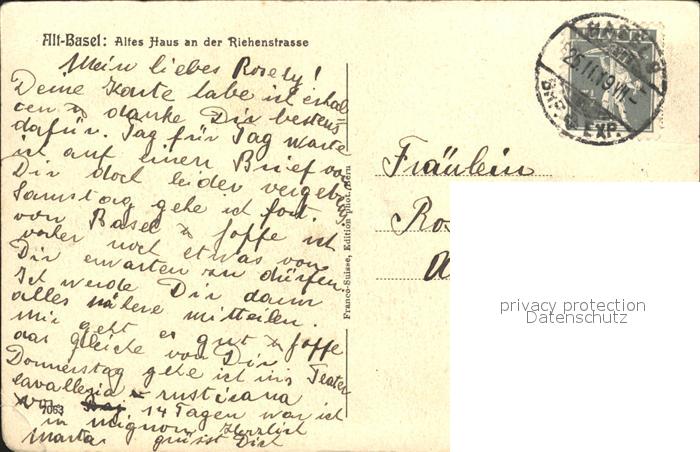 Alt-Basel: Altes Haus an der Riehenstrasse
Mein liebes Rosely!
Deine Karte habe ich erhal
ten & danke Dir bestens
dafür. Tag für Tag warte
ich auf einen Brief von
Dir doch leider vergebs
Samstag gehe ich fort.
von Basel & hoffe ich
vorher noch etwas von
Dir erwarten zu dürfen.
Ich werde Dir dann
alles nähere mitteilen.
Mir geht es gut & hoffe
das gleiche von Dir
Donnerstag gehe ich ins Teater
cavalleria rusticana
vor 14 Tagen war ich
in Mignon Herzlich
grüsst Dich
Martha
7063
Franco-Suisse, Edition phot. Bern
BAS
25.11.19 VII-
EXP.
Fräulein
Ros
privacy protection
Datenschutz